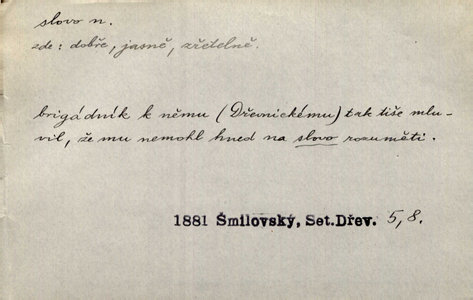 slovo n.
zde: dobře, jasně, zřetelně.
brigádník k němu (Dřevnickému) tak tiše mlu-
vil, že mu nemohl hned na slovo rozuměti.
1881 Šmilovský, Set.Dřev. 5,8.